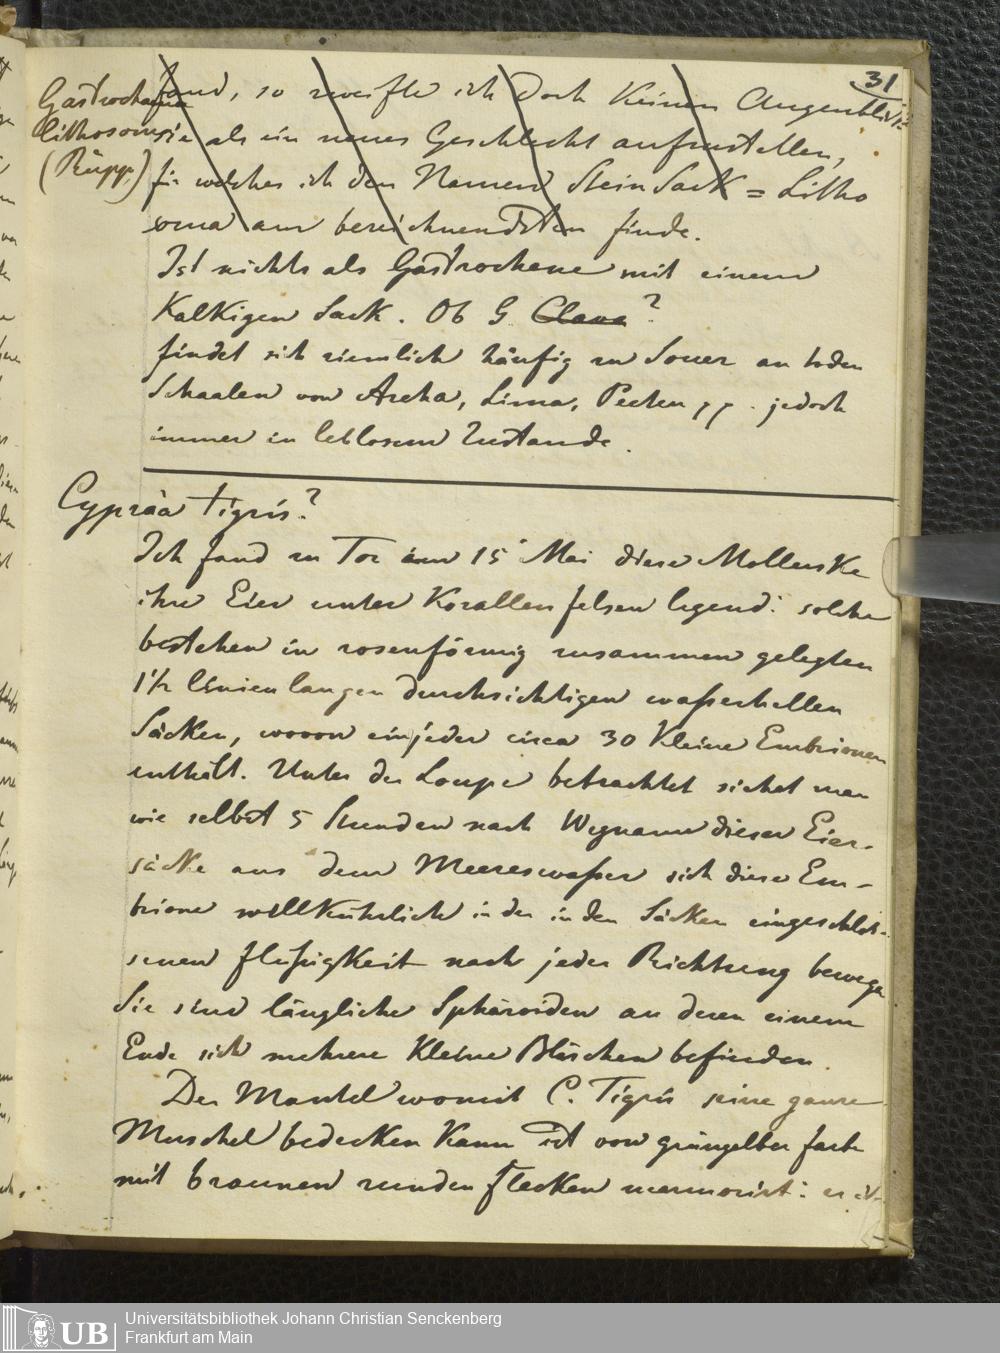 31
Gastrochaena
lithosoma
(Rüpp.)
fand, so zweifle ich doch keinen Augenblick
sie als ein neues Geschlecht aufzustellen,
für welches ich den Namen Stein Sack = Litho
soma am bezeichnendsten finde.
Ist nichts als Gastrochene mit einem
Kalkigen Sack. Ob G. Clava?
findet sich ziemlich häufig zu Souer an toden
Schaalen von Archa, Lima, Pecten pp. jedoch
immer in leblosem Zustande.
Cypräa Tigris?
Ich fand zu Tor am 15 Mai diese Molluske
ihre Eier unter Korallenfelsen legend: solche
bestehen in rosenförmig zusammen gelegten
1½ linien langen durchsichtigen waſserhellen
Säcken, wovon ein jeder circa 30 kleine Embrionen
enthält. Unter der Loupe betrachtet siehet man
wie selbst 5 Stunden nach Wegnam dieser Eier-
säcke aus dem Meereswaſser sich diese Em-
brione willkührlich in der in den Säcken eingeschlos-
senen flüſsigkeit nach jeder Richtung bewegen
Sie sind längliche Sphäroiden an deren einem
Ende sich mehrere kleine Bläschen befinden.
Der Mantel womit C. Tigris seine ganze
Muschel bedecken kann ist von grüngelber farbe
mit braunen runden flecken marmorirt: er ist
Universitätsbibliothek Johann Christian Senckenberg
Frankfurt am Main
UB